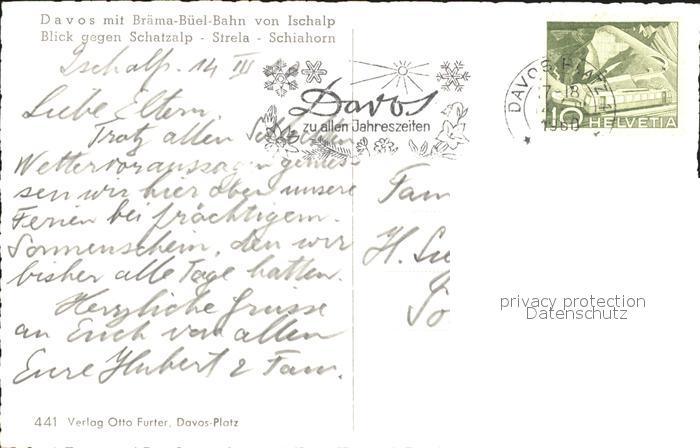 Davos mit Bräma-Büel-Bahn von Ischalp
Blick gegen Schatzalp - Strela - Schiahorn
Ischalp. 14 III
Liebe Eltern,
Trotz allen schlechten
Wettervoraussagen genies-
sen wir hier oben unsere
Ferien bei prächtigem
Sonnenschein, den wir
bisher alle Tage hatten.
Herzliche Grüsse
an Euch von allen
Eure Hubert & Fam.
441 Verlag Otto Furter, Davos-Platz
Davos
zu allen Jahreszeiten
DAVOS PLATZ
17-18
1960
10 HELVETIA
Fam
H.
privacy protection
Datenschutz